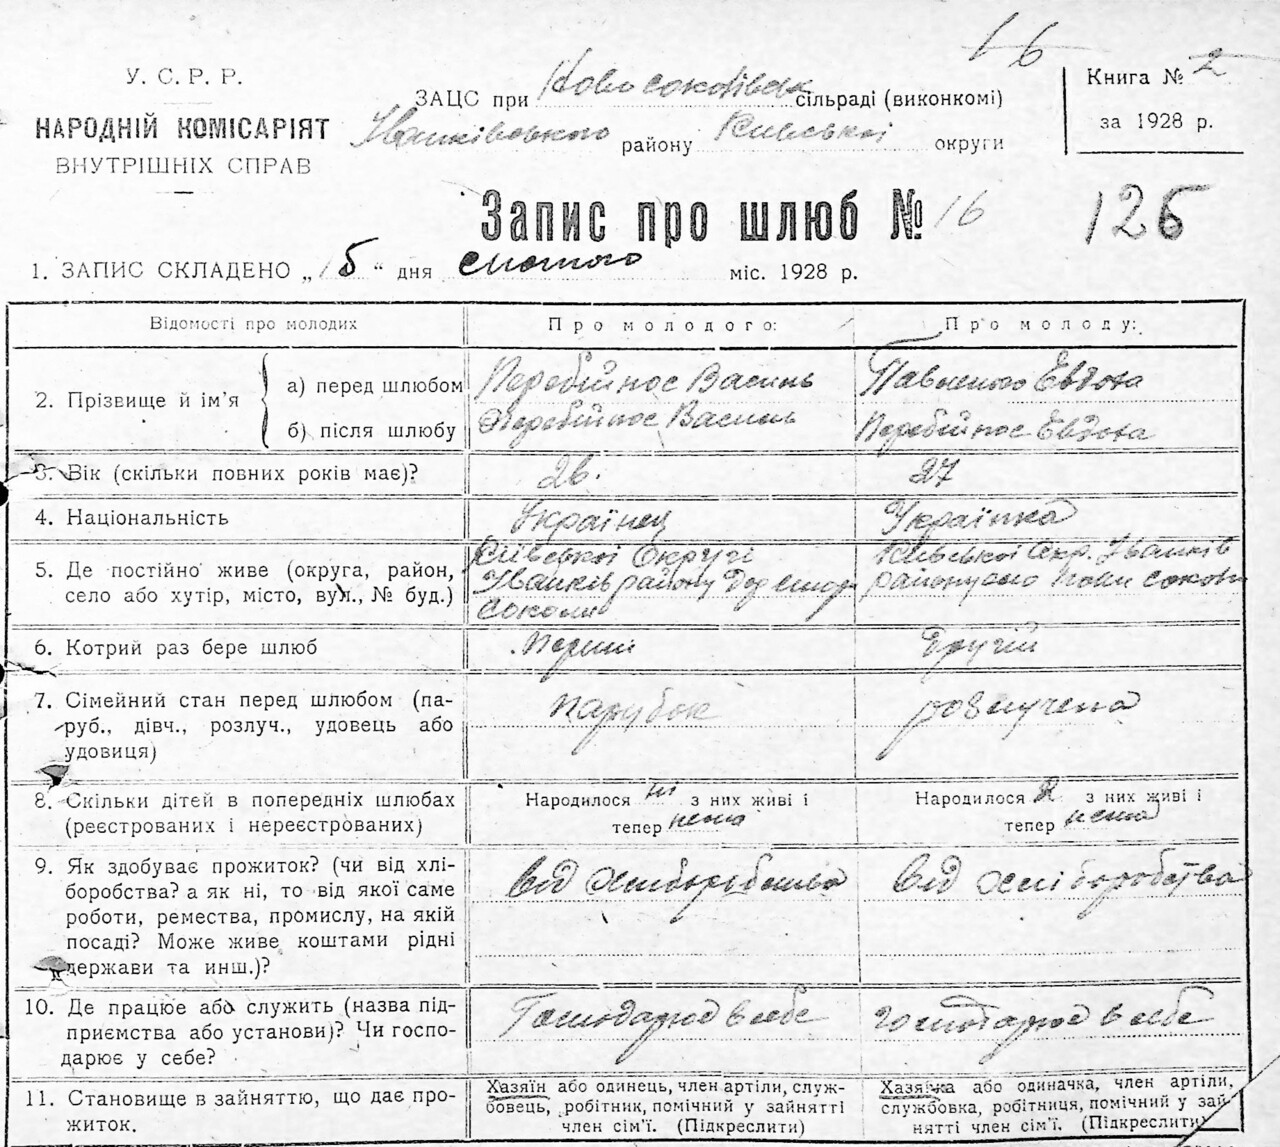 16
У. С. Р. Р.
НАРОДНІЙ КОМІСАРІЯТ
ВНУТРІШНІХ СПРАВ
ЗАЦС при Ново соколівск сільраді (виконкомі)
Іванківського району Київської округи
Книга № 2
за 1928 р.
Запис про шлюб № 16
126
1. ЗАПИС СКЛАДЕНО „15“ дня лютого міс. 1928 р.
Відомості про молодих
Про молодого:
Про молоду:
2. Прізвище й ім'я
а) перед шлюбом
Перебийнос Василь
Евдоха
б) після шлюбу
Перебийнос Василь
Перебийнос Евдоха
3. Вік (скільки повних років має)?
26.
27
4. Національність
Українец
Українка
5. Де постійно живе (округа, район,
село або хутір, місто, вул., № буд.)
Київської Округі
Іванків району
соколи
Київської Окр. Іванків
району село Нови соколи
6. Котрий раз бере шлюб
Перши
Другій
7. Сімейний стан перед шлюбом (па-
руб., дівч., розлуч., удовець або
удовиця)
парубок
розлучена
8. Скільки дітей в попередніх шлюбах
(реєстрованих і нереєстрованих)
Народилося ні з них живі і
тепер нема
Народилося 2 з них живі і
тепер нема
9. Як здобуває прожиток? (чи від хлі-
боробства? а як ні, то від якої саме
роботи, ремества, промислу, на якій
посаді? Може живе коштами рідні
держави та инш.)?
Вод хліборобства
Вод хліборобства
10. Де працює або служить (назва під-
приємства або установи)? Чи госпо-
дарює у себе?
Господарює в себе
Господарює в себе
11. Становище в зайняттю, що дає про-
житок.
Хазяїн або одинець, член артіли, служ-
бовець, робітник, помічний у зайнятті
член сім'ї. (Підкреслити)
Хазяйка або одиначка, член артіли,
службовка, робітниця, помічний у зай-
нятті член сім'ї. (Підкреслити)